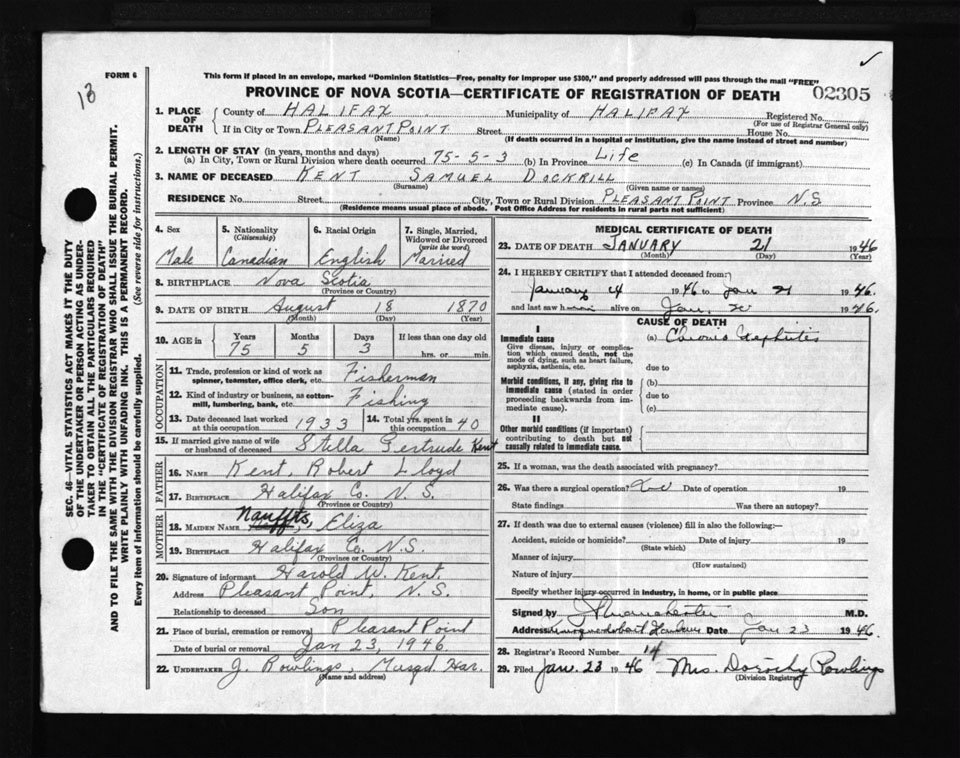 18
FORM 6
This form if placed in an envelope, marked "Dominion Statistics—Free, penalty for improper use $300," and properly addressed will pass through the mail "FREE"
PROVINCE OF NOVA SCOTIA—CERTIFICATE OF REGISTRATION OF DEATH 02305
1. PLACE OF DEATH County of HALIFAX Municipality of HALIFAX Registered No.
(For use of Registrar General only)
If in City or Town PLEASANT POINT Street House No.
(Name) (If death occurred in a hospital or institution, give the name instead of street and number)
2. LENGTH OF STAY (in years, months and days)
(a) In City, Town or Rural Division where death occurred 75-5-3 (b) In Province Life (c) In Canada (if immigrant)
3. NAME OF DECEASED KENT SAMUEL DOCKRILL
(Surname) (Given name or names)
RESIDENCE No. Street City, Town or Rural Division PLEASANT POINT Province N.S
(Residence means usual place of abode. Post Office Address for residents in rural parts not sufficient)
4. Sex 5. Nationality (Citizenship) 6. Racial Origin 7. Single, Married, Widowed or Divorced (write the word)
Male Canadian English Married
8. BIRTHPLACE Nova Scotia
(Province or Country)
9. DATE OF BIRTH August 18 1870
(Month) (Day) (Year)
10. AGE in Years Months Days If less than one day old
75 5 3 hrs. or min.
OCCUPATION
11. Trade, profession or kind of work as spinner, teamster, office clerk, etc. Fisherman
12. Kind of industry or business, as cotton-mill, lumbering, bank, etc. Fishing
13. Date deceased last worked at this occupation 1933 14. Total yrs. spent in this occupation 40
15. If married give name of wife or husband of deceased Stella Gertrude Kent
FATHER
16. NAME Kent, Robert Lloyd
17. BIRTHPLACE Halifax Co. N.S.
(Province or Country)
MOTHER
18. MAIDEN NAME Nauffts, Eliza
19. BIRTHPLACE Halifax Co. N.S.
(Province or Country)
20. Signature of informant Harold W. Kent.
Address Pleasant Point, N.S.
Relationship to deceased Son
21. Place of burial, cremation or removal Pleasant Point
Date of burial or removal Jan 23, 1946.
22. UNDERTAKER J. Rowlings, Musqd. Har.
(Name and address)
MEDICAL CERTIFICATE OF DEATH
23. DATE OF DEATH JANUARY 21 1946
(Month) (Day) (Year)
24. I HEREBY CERTIFY that I attended deceased from:
January 4 1946 to Jan 21 1946.
and last saw h alive on Jan. 1946.
CAUSE OF DEATH
I
Immediate cause (a) Chronic Nephritis
Give disease, injury or complication which caused death, not the mode of dying, such as heart failure, asphyxia, asthenia, etc.
due to
Morbid conditions, if any, giving rise to immediate cause (stated in order proceeding backwards from immediate cause) (b)
due to
(c)
II
Other morbid conditions (if important) contributing to death but not causally related to immediate cause.
25. If a woman, was the death associated with pregnancy?
26. Was there a surgical operation? No Date of operation 19
State findings Was there an autopsy?
27. If death was due to external causes (violence) fill in also the following:—
Accident, suicide or homicide? Date of injury 19
(State which)
Manner of injury
(How sustained)
Nature of injury
Specify whether injury occurred in industry, in home, or in public place
Signed by M.D.
Address Date Jan 23 1946.
28. Registrar's Record Number 14
29. Filed Jan. 23 1946 Mrs Dorothy Rowlings
(Division Registrar)
SEC. 46—VITAL STATISTICS ACT MAKES IT THE DUTY
OF THE UNDERTAKER OR PERSON ACTING AS UNDER-
TAKER TO OBTAIN ALL THE PARTICULARS REQUIRED
IN THE "CERTIFICATE OF REGISTRATION OF DEATH"
AND TO FILE THE SAME WITH THE DIVISION REGISTRAR WHO SHALL ISSUE THE BURIAL PERMIT.
WRITE PLAINLY WITH UNFADING INK. THIS IS A PERMANENT RECORD.
Every item of information should be carefully supplied. (See reverse side for instructions).